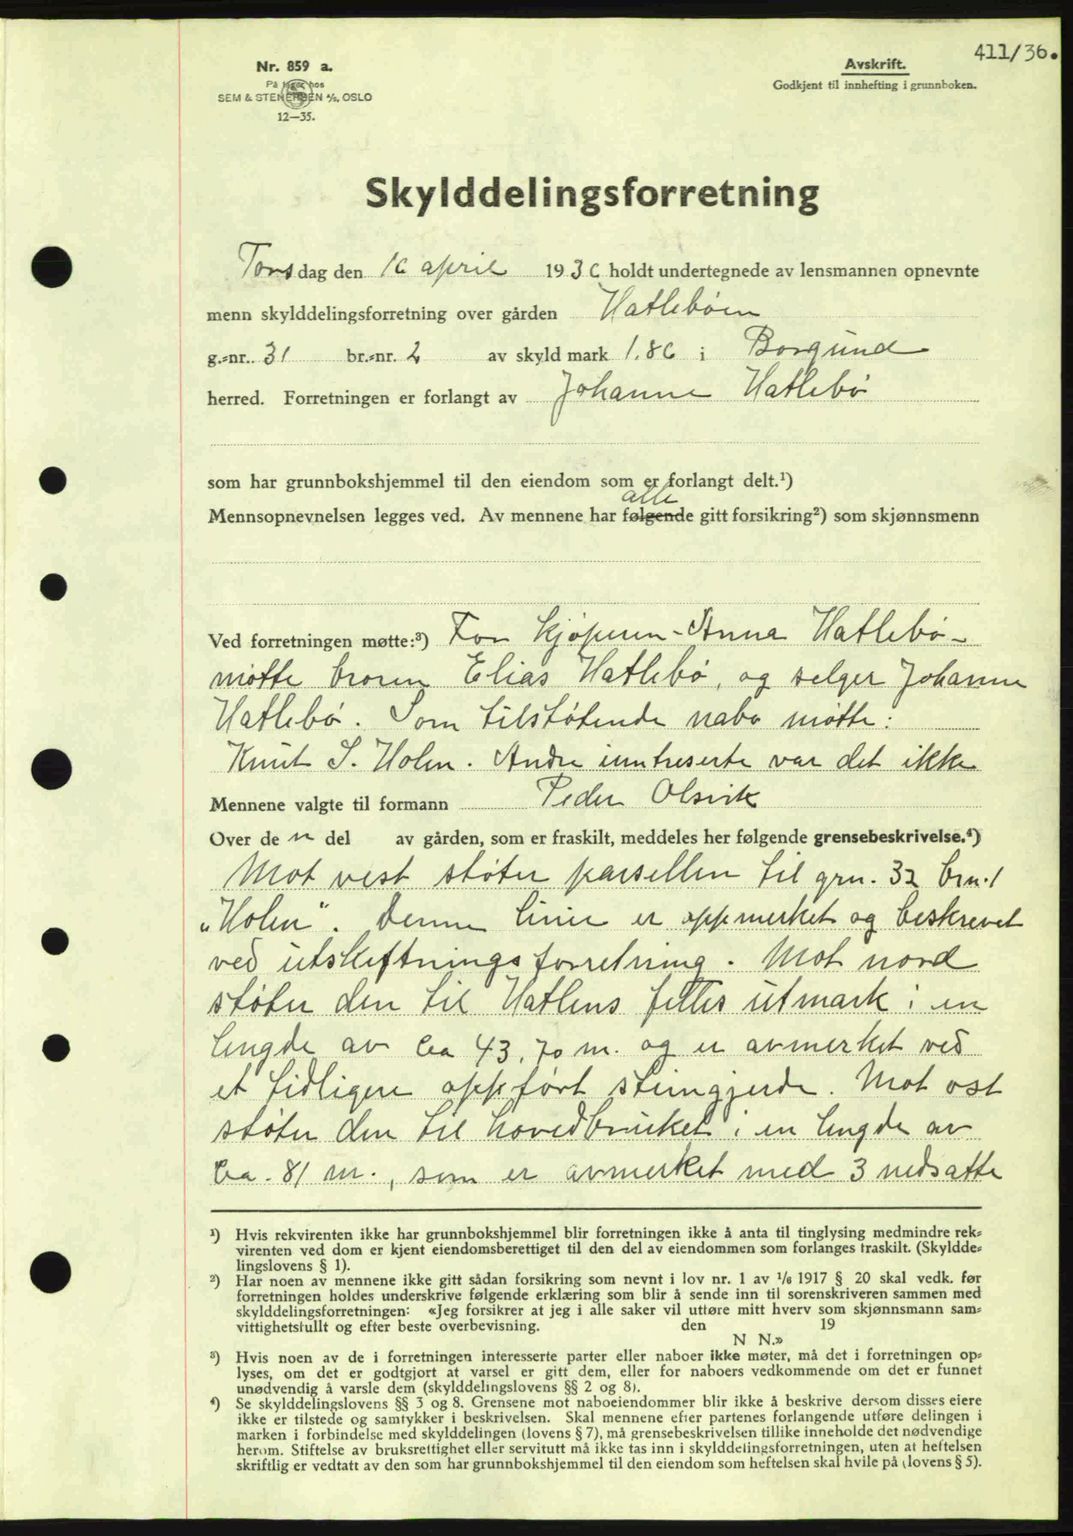 411/36.
Nr. 859 a.
På lager hos
SEM & STENERSEN A/S, OSLO
12—35.
Avskrift.
Godkjent til innhefting i grunnboken.
Skylddelingsforretning
Torsdag den 16 april 1936 holdt undertegnede av lensmannen opnevnte
menn skylddelingsforretning over gården Hatlebøen
g.-nr. 31 br.-nr. 2 av skyld mark 1.86 i Borgund
herred. Forretningen er forlangt av Johanne Hatlebø
som har grunnbokshjemmel til den eiendom som er forlangt delt.¹)
alle
Mennsopnevnelsen legges ved. Av mennene har følgende gitt forsikring²) som skjønnsmenn
Ved forretningen møtte:³) For kjøperen - Anna Hatlebø -
møtte broren Elias Hatlebø, og selger Johanne
Hatlebø. Som tilstøtende nabo møtte:
Knut S. Holen. Andre inntreserte var det ikke
Mennene valgte til formann Peder Olsvik
Over de n del av gården, som er fraskilt, meddeles her følgende grensebeskrivelse.⁴)
Mot vest støter parsellen til grn. 32 brn. 1
"Holen". Denne linie er oppmerket og beskrevet
ved utskiftningsforretning. Mot nord
støter den til Hatlens felles utmark i en
lengde av ca 43,70 m. og er avmerket ved
et tidligere oppført steingjerde. Mot ost
støter den til hovedbruket i en lengde av
ca. 81 m., som er avmerket med 3 nedsatte
¹) Hvis rekvirenten ikke har grunnbokshjemmel blir forretningen ikke å anta til tinglysing medmindre rek-
virenten ved dom er kjent eiendomsberettiget til den del av eiendommen som forlanges fraskilt. (Skyldde-
lingslovens § 1).
²) Har noen av mennene ikke gitt sådan forsikring som nevnt i lov nr. 1 av 1/6 1917 § 20 skal vedk. før
forretningen holdes underskrive følgende erklæring som blir å sende inn til sorenskriveren sammen med
skylddelingsforretningen: «Jeg forsikrer at jeg i alle saker vil utføre mitt hverv som skjønnsmann sam-
vittighetsfullt og efter beste overbevisning. den 19
N N.»
³) Hvis noen av de i forretningen interesserte parter eller naboer ikke møter, må det i forretningen op-
lyses, om det er godtgjort at varsel er gitt dem, eller for naboers vedkommende om det er funnet
unødvendig å varsle dem (skylddelingslovens §§ 2 og 8).
⁴) Se skylddelingslovens §§ 3 og 8. Grensene mot naboeiendommer blir ikke å beskrive dersom disses eiere
ikke er tilstede og samtykker i beskrivelsen. Skal mennene efter partenes forlangende utføre delingen i
marken i forbindelse med skylddelingen (lovens § 7), må grensebeskrivelsen tillike inneholde det nødvendige
herom. Stiftelse av bruksrettighet eller servitutt må ikke tas inn i skylddelingsforretningen, uten at heftelsen
skriftlig er vedtatt av den som har grunnbokshjemmel til den eiendom som heftelsen skal hvile på (lovens § 5).